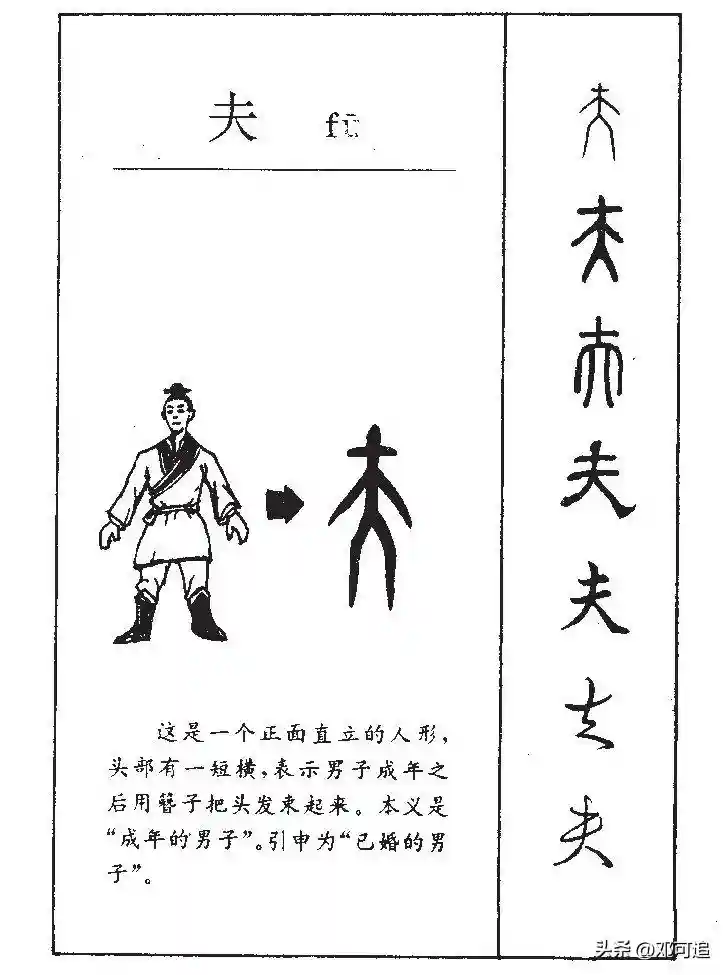 夫 fū
这是一个正面直立的人形，
头部有一短横，表示男子成年之
后用簪子把头发束起来。本义是
“成年的男子”。引申为“已婚的男
子”。
夫
夫
夫
夫
夫
夫
夫
头条 @邓可追